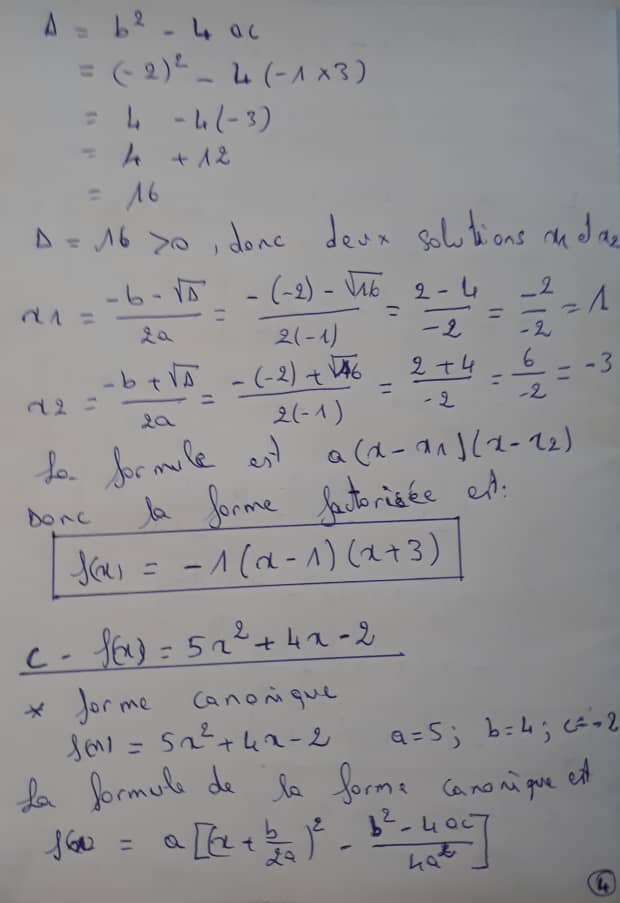 Δ = b² - 4 ac
= (-2)² - 4(-1×3)
= 4 - 4(-3)
= 4 + 12
= 16
Δ = 16 >0, donc deux solutions x1 et x2
x1 = (-b - √Δ)/(2a) = (-(-2) - √16)/(2(-1)) = (2 - 4)/(-2) = (-2)/(-2) = 1
x2 = (-b + √Δ)/(2a) = (-(-2) + √16)/(2(-1)) = (2 + 4)/(-2) = 6/(-2) = -3
La formule est a(x - x1)(x - x2)
Donc la forme factorisée est:
f(x) = -1(x - 1)(x + 3)
c - f(x) = 5x² + 4x - 2
* forme canonique
f(x) = 5x² + 4x - 2 a=5; b=4; c=-2
La formule de la forme canonique est
f(x) = a[(x + b/(2a))² - (b² - 4ac)/(4a²)]
4